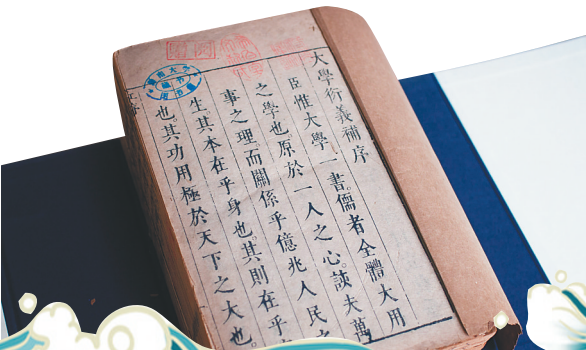 大學衍義補序
臣惟大學一書。儒者全體大用
之學也。原於一人之心。該夫萬
事之理。而關係乎億兆人民之
生其本在乎身也。其則在乎
也其功用極於天下之大也。